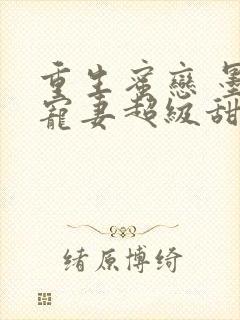 重生蜜戀 墨
寵妻超級甜
緒原博綺